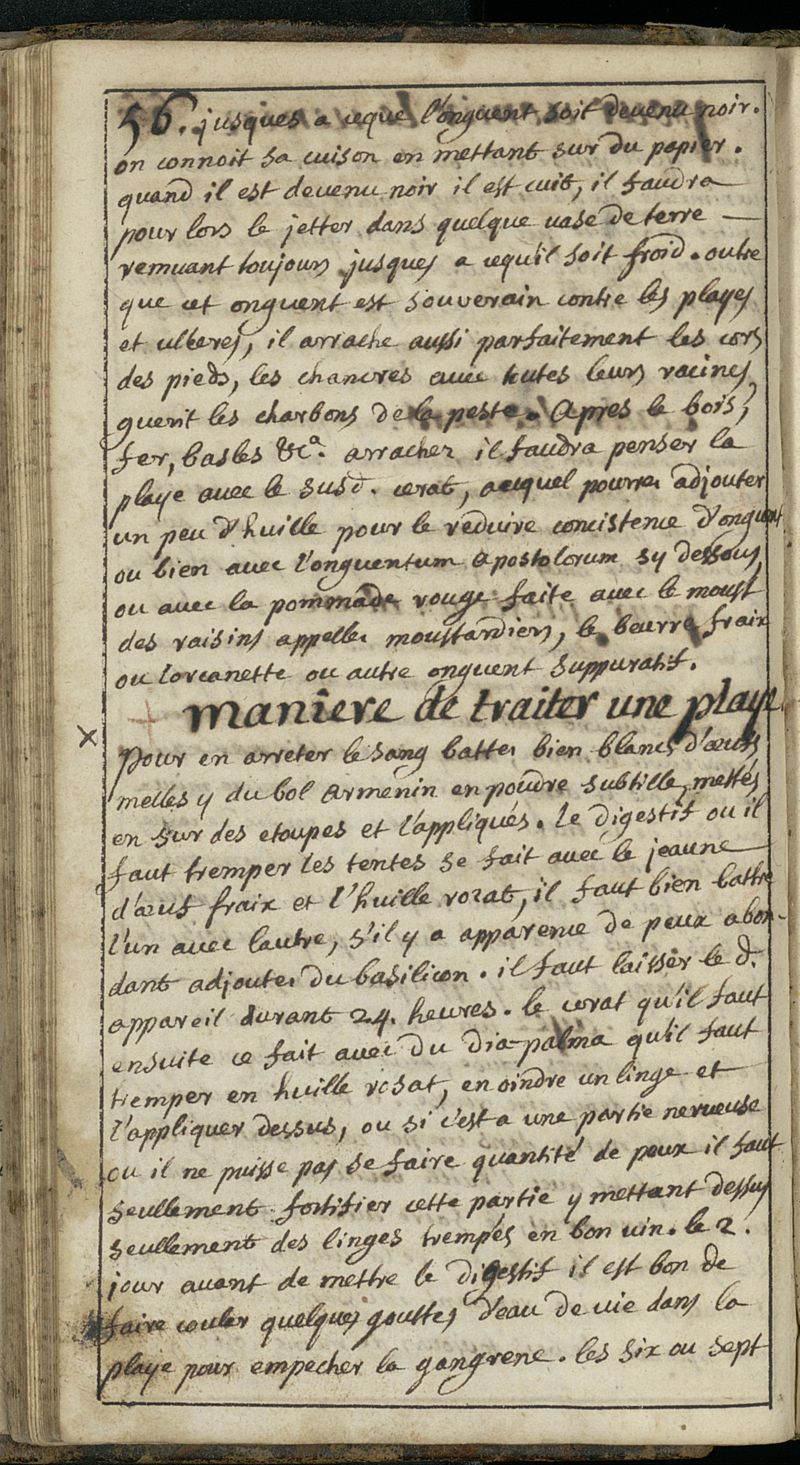 56. jusques a ceque l'onguent soit devenu noir.
on connoit sa cuison en mettant sur du papier.
quand il est devenu noir il est cuit, il faudra
pour lors le jetter dans quelque vase de terre —
remuant toujours jusques a cequ'il soit froid. outre
que cet onguent est souverain contre les playes
et ulceres, il arrache aussi parfaitement les cors
des pieds, les chancres avec toutes leurs racines,
guerit les charbons de la peste. Apres le bois,
fer, basles &ca. arrachez il faudra penser la
playe avec le susd. cerat, auquel pourrez adjouter
un peu d'huille pour le reduire concistence d'onguent
ou bien avec l'onguentum apostolorum sy dessous,
ou avec la pommade rouge faite avec le moust
des raisins appellez moustardiers, le beurre fraix
ou l'orcanette ou autre onguent suppuratif.
+ maniere de traiter une playe.
x pour en arreter le sang battez bien blancs d'œufs
melles y du bol armenin en poudre subtille, mettés
en sur des etoupes et l'appliqués. le digestif ou il
faut tremper les tentes se fait avec le jeaune —
d'œuf fraix et l'huille rozat, il faut bien battre
l'un avec lautre, s'il y a apparence de peux abon-
dant adjoutez du basilicon. il faut laisser le d.
appareil durant 24. heures. le cerat qu'il faut
ensuite ce fait avec du dia-palma qu'il faut
tremper en huille rosat, en oindre un linge et
l'appliquer dessus, ou si c'est a une partie nerveuse
ou il ne puisse pas se faire quantité de peux il faut
seullement fortifier cette partie y mettant dessus
seullement des linges trempés en bon vin. le 2.
jour avant de mettre le digestif il est bon de
faire couler quelques gouttes d'eau de vie dans la
playe pour empecher la gangrene. les six ou sept